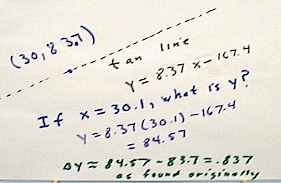 (30, 83.7)
tan line
y = 8.37 x - 167.4
If x = 30.1, what is y?
y = 8.37 (30.1) - 167.4
= 84.57
Δy ≈ 84.57 - 83.7 = .837
as found originally